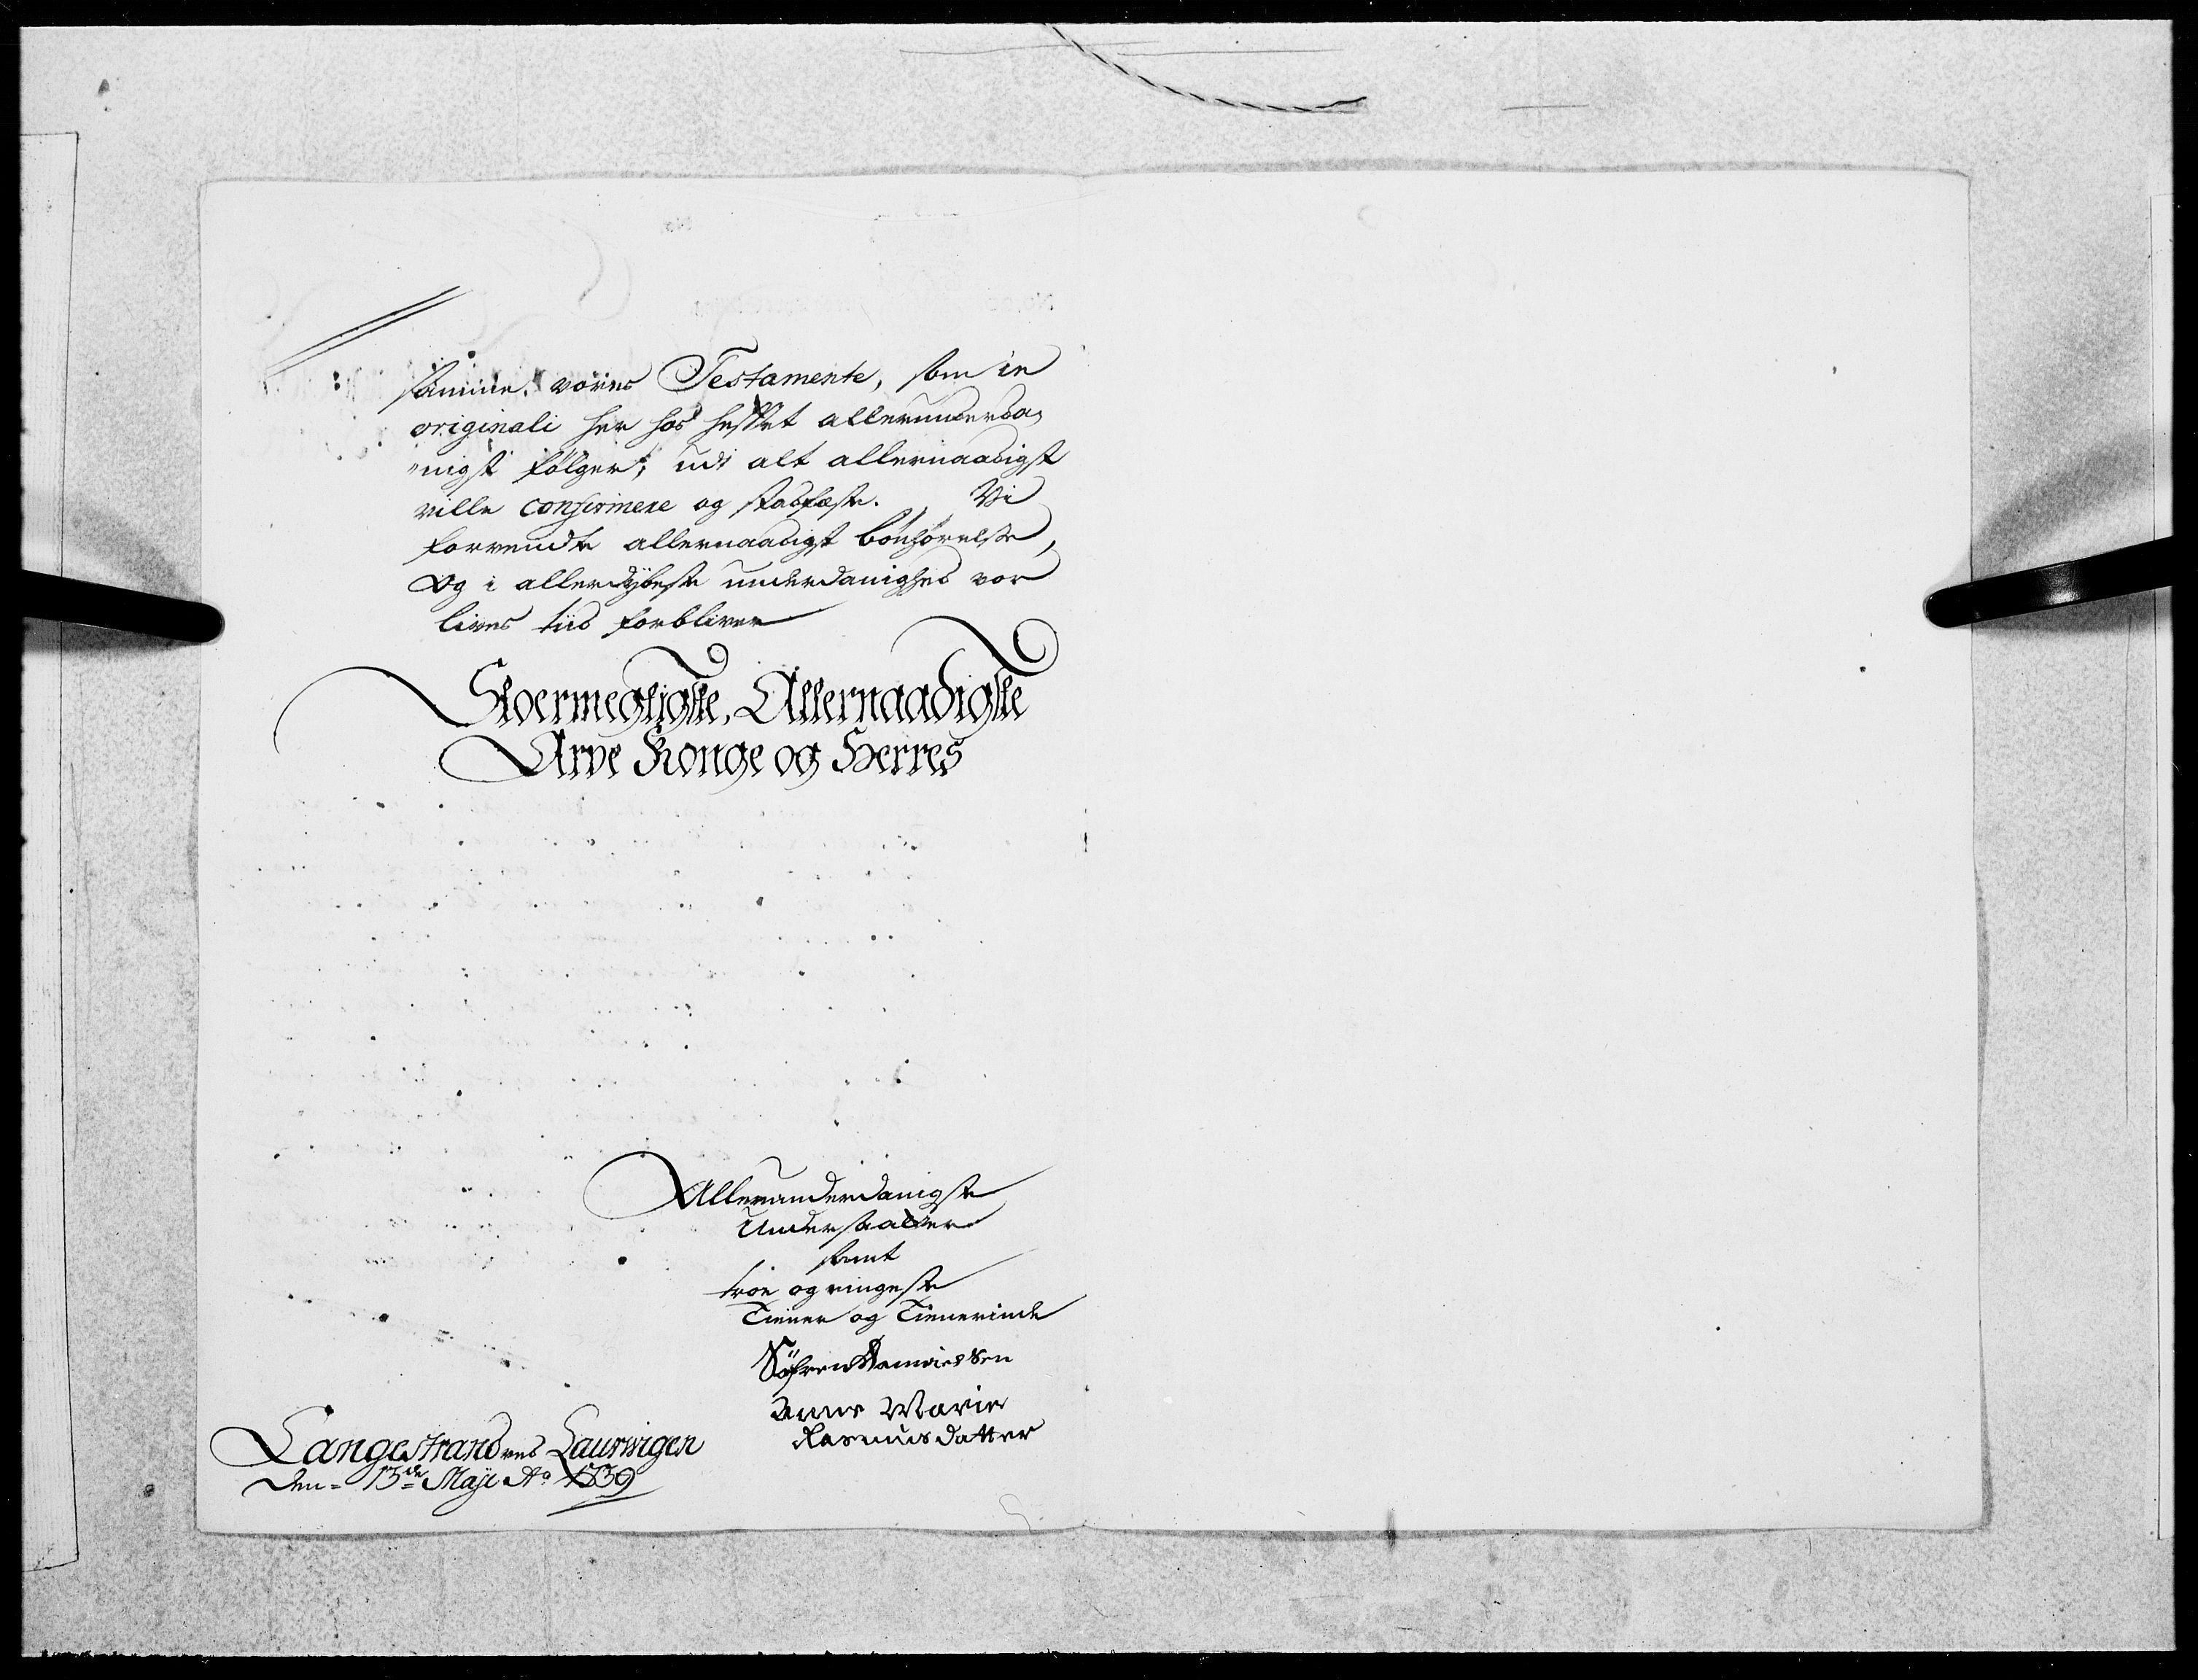 samme vores Testamente, som in
originali her hos heftet allerunderda„
„nigst følger, udi alt allernaadigst
ville confirmere og stadfæste. Vi
forvendte allernaadigst bønhørelse,
og i allerdybeste underdanighed vor
lives tiid forbliver
Stoermegtigste, Allernaadigste
Arve Konge og Herres
Allerunderdanigste
Undersaatter
samt
troe og ringeste
Tiener og Tienerinde
Söfren
Anne Marie
Rasmusdatter
Langestrand ved Laurvigen
den = 13de Maji Ao 1739